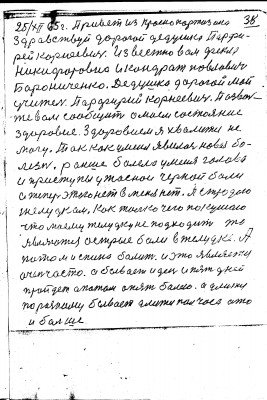 25/XII 65г. Привет из Краснопартизана 38
Здравствуй дорогой дедушка Парфи-
рей Корнаевич. Известно вам деки
Никидоровна и Кондрат Павлович
Парониченко. Дедушка дорогой мой
учител. Парфирий Корневич. Позвол-
те вам сообщит о маем состояние
здоровие. Здоровием я хвалити не
могу. Так как у меня явилас новая бо-
лезн. раньше болела у меня голова
и приступы ужасной черной боли
а типер этого нет в меня нет. Я страдаю
желудкам, как толко чего покушаю
что моему желудку не подходит то
являются острые боли в желудке. А
потом и спина болит. и это являетс
очен часто. а бывает и ден и пят дней
пройдет а патом опят болею. а длину
по разному бывает длити пол часа а то
и болше